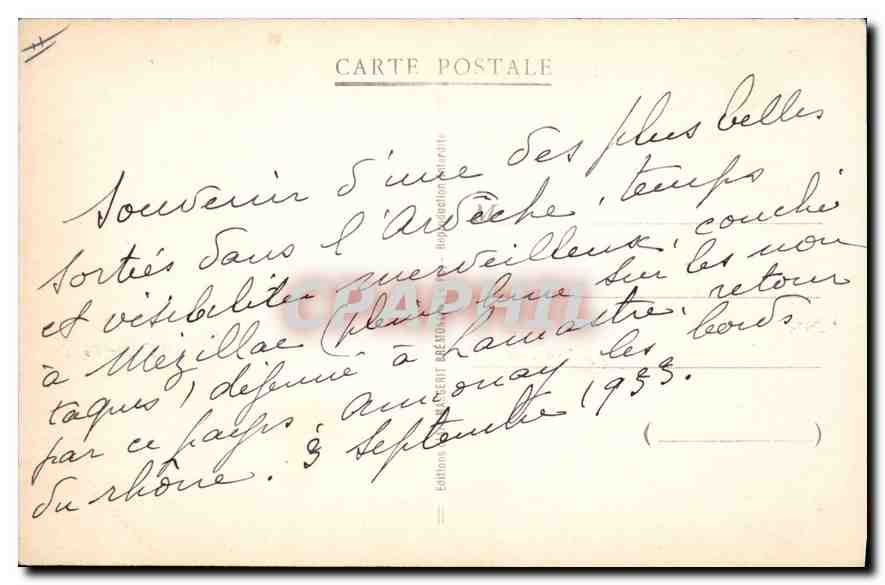 CARTE POSTALE
Souvenir d'une des plus belles
sorties dans l'Ardèche, temps
et visibilité merveilleux, couché
à Mézillac (pleine lune sur les mon
tagnes) déjeuné à Lamastre, retour
par ce pays, Annonay les bords
du rhône. 3 Septembre 1933.
Editions MARGERIT BRÉMOND Reproduction interdite
CPAPHIL